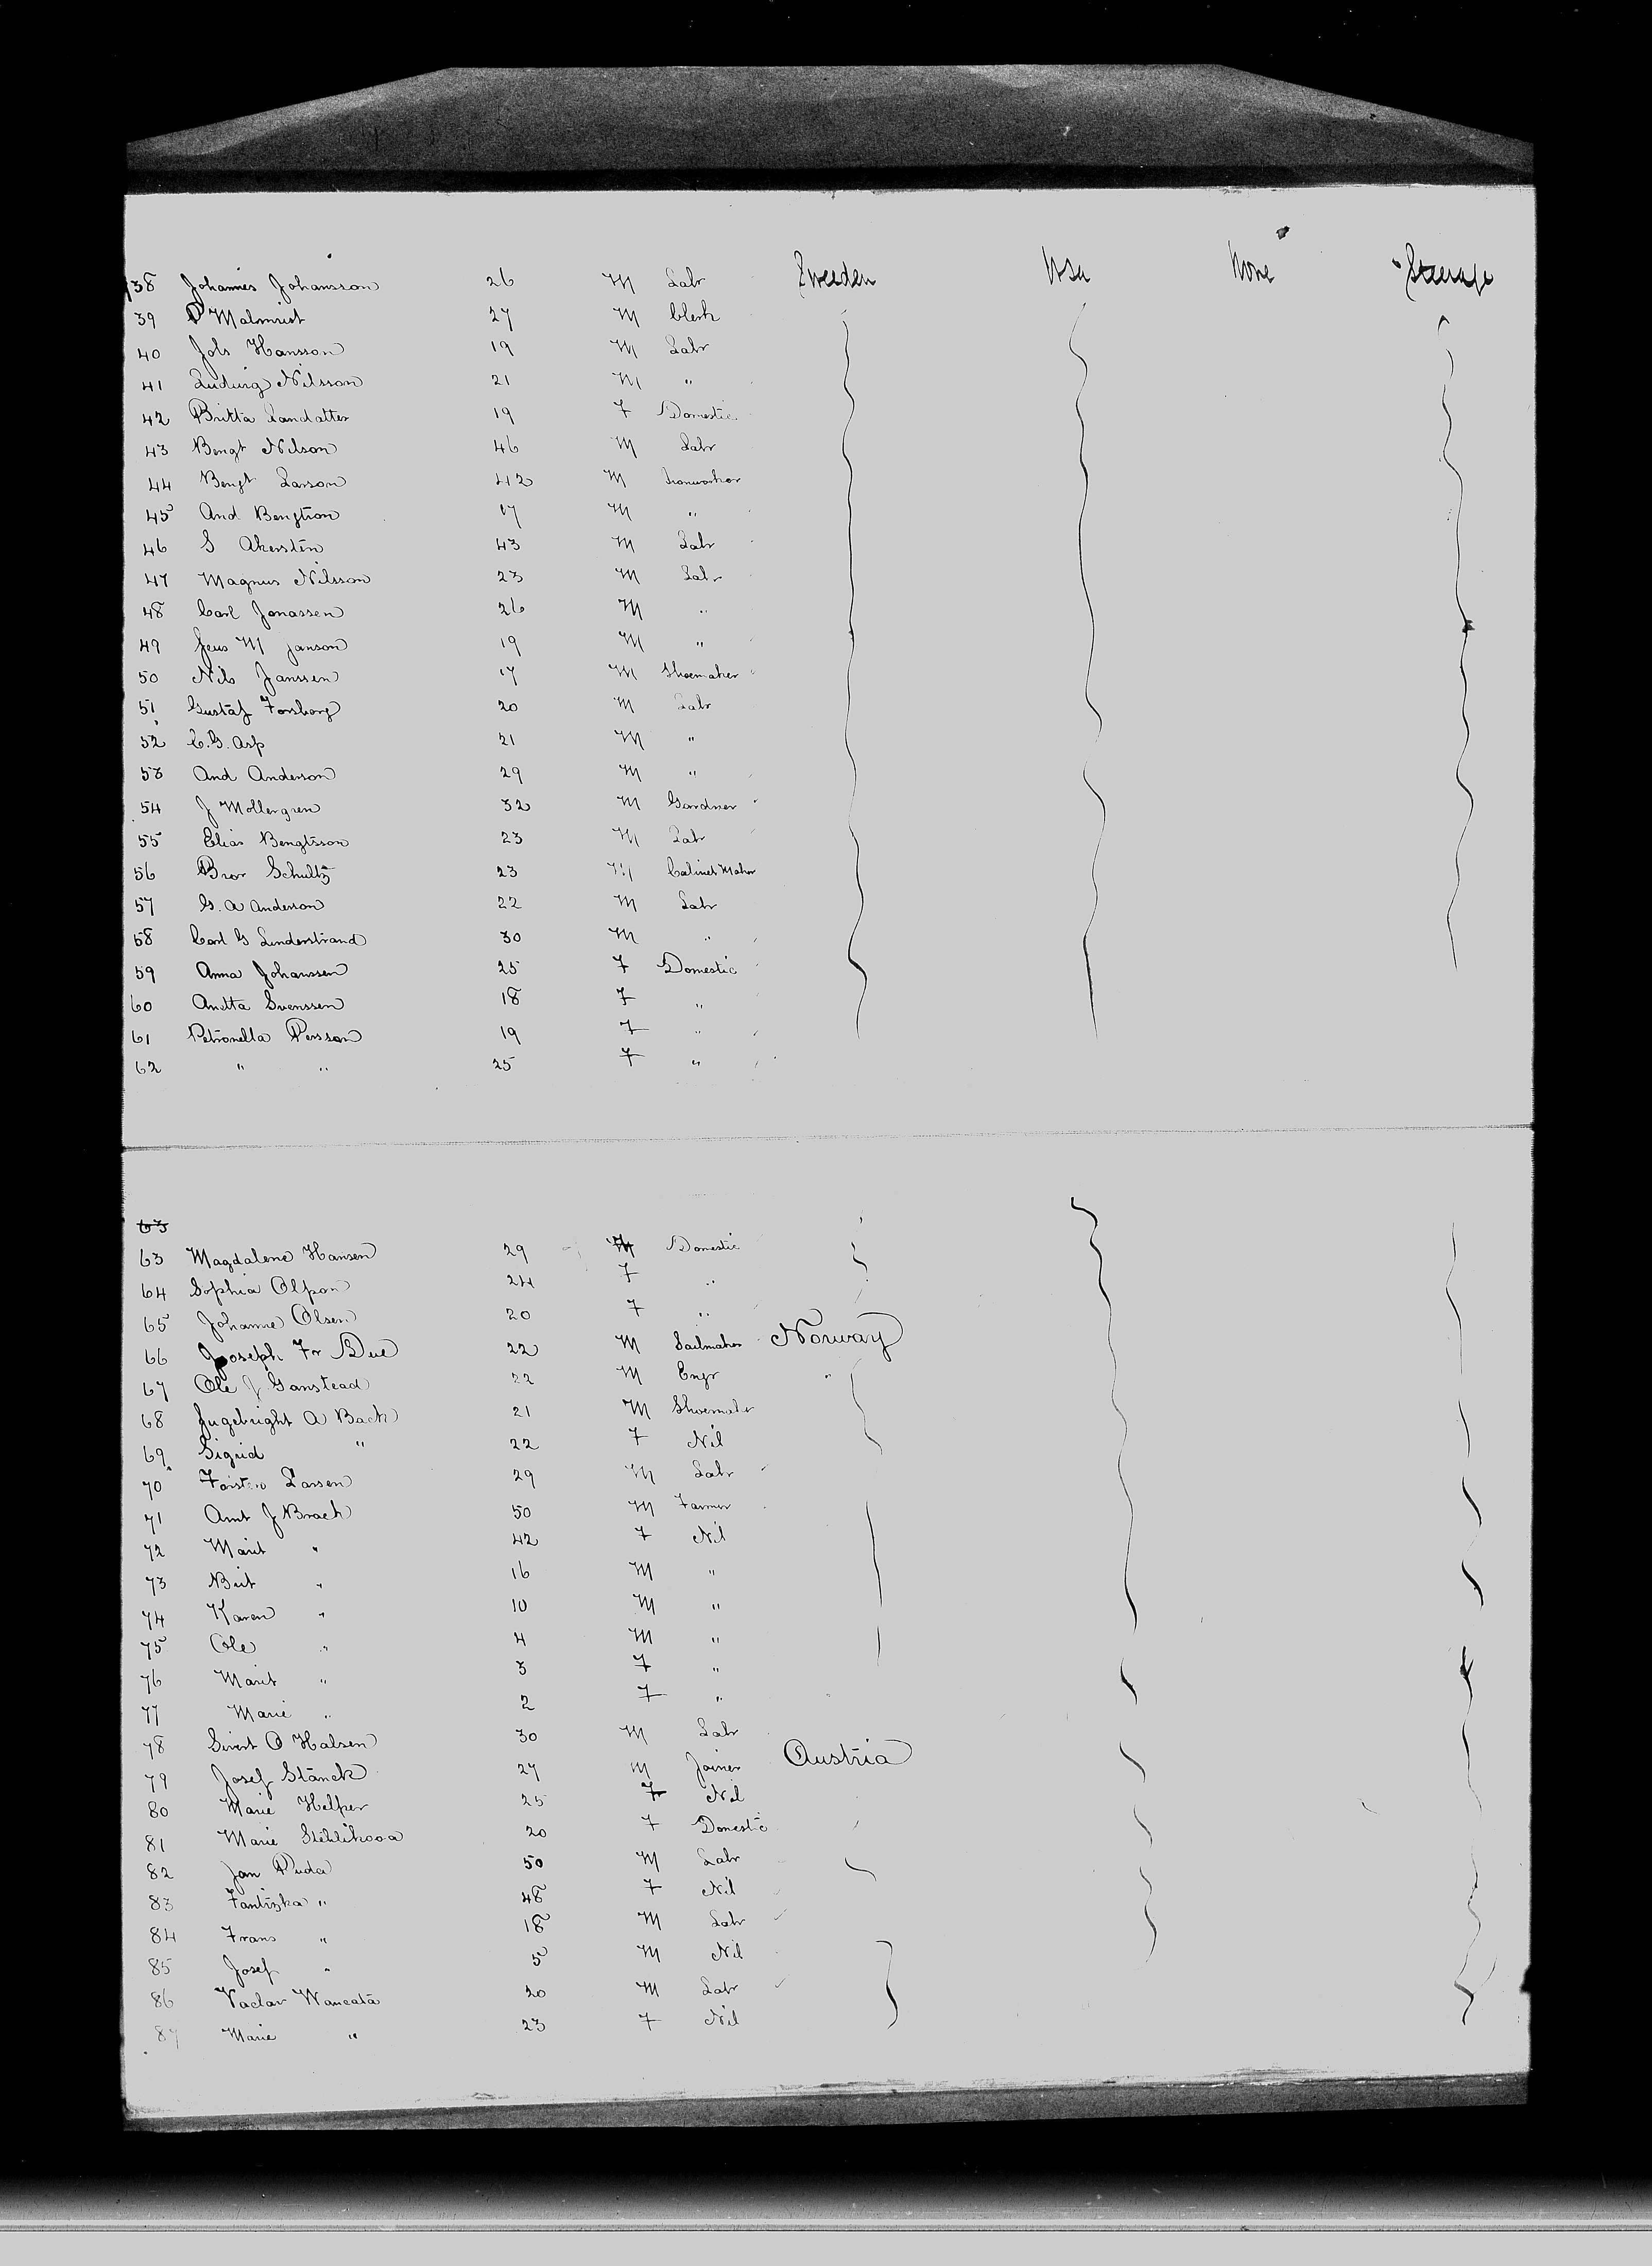 38 Johannes Johansson 26 M Labr Sweden USA None Steerage
39 P Malmrist 27 M Clerk
40 Johs Hansson 19 M Labr
41 Ludwig Nilsson 21 M "
42 Britta Sandatter 19 F Domestic
43 Bengt Nilson 46 M Labr
44 Bengt Larson 42 M Ironworker
45 And Bengtson 17 M "
46 S Akersten 43 M Labr
47 Magnus Nilsson 23 M Labr
48 Carl Jonassen 26 M "
49 Jens M Janson 19 M "
50 Nils Janssen 17 M Shoemaker
51 Gustaf Forsberg 20 M Labr
52 C.G. Asp 21 M "
53 And Anderson 29 M "
54 J Mollergren 32 M Gardner
55 Elias Bengtsson 23 M Labr
56 Bror Schultz 23 M Cabinet Maker
57 G. A Anderson 22 M Labr
58 Carl G Linderstrand 30 M "
59 Anna Johanssen 25 F Domestic
60 Anetta Svenssen 18 F "
61 Petronella Persson 19 F "
62 " " 25 F "
63
63 Magdalene Hansen 29 Domestic
64 Sophia Olpon 24 F "
65 Johanne Olsen 20 F "
66 Joseph Fr Due 22 M Sailmaker Norway
67 Ole J Ganstead 22 M Engr "
68 Jugebright A Back 21 M Shoemaker
69 Sigrid " 22 F Nil
70 Larsen 29 M Labr
71 Arnt J Brack 50 M Farmer
72 Marit " 42 F Nil
73 Brit " 16 M "
74 Karen " 10 M "
75 Ole " 4 M "
76 Marit " 3 F "
77 Marie " 2 F "
78 Sivert O Halsen 30 M Labr
79 Josef Stanek 27 M Joiner Austria
80 Marie Helper 25 F Nil
81 Marie Steklikova 20 F Domestic
82 Jan Duda 50 M Labr
83 Fantiska " 48 F Nil
84 Frans " 18 M Labr
85 Josef " 5 M Nil
86 Vaclav Wancata 20 M Labr
87 Marie " 23 F Nil